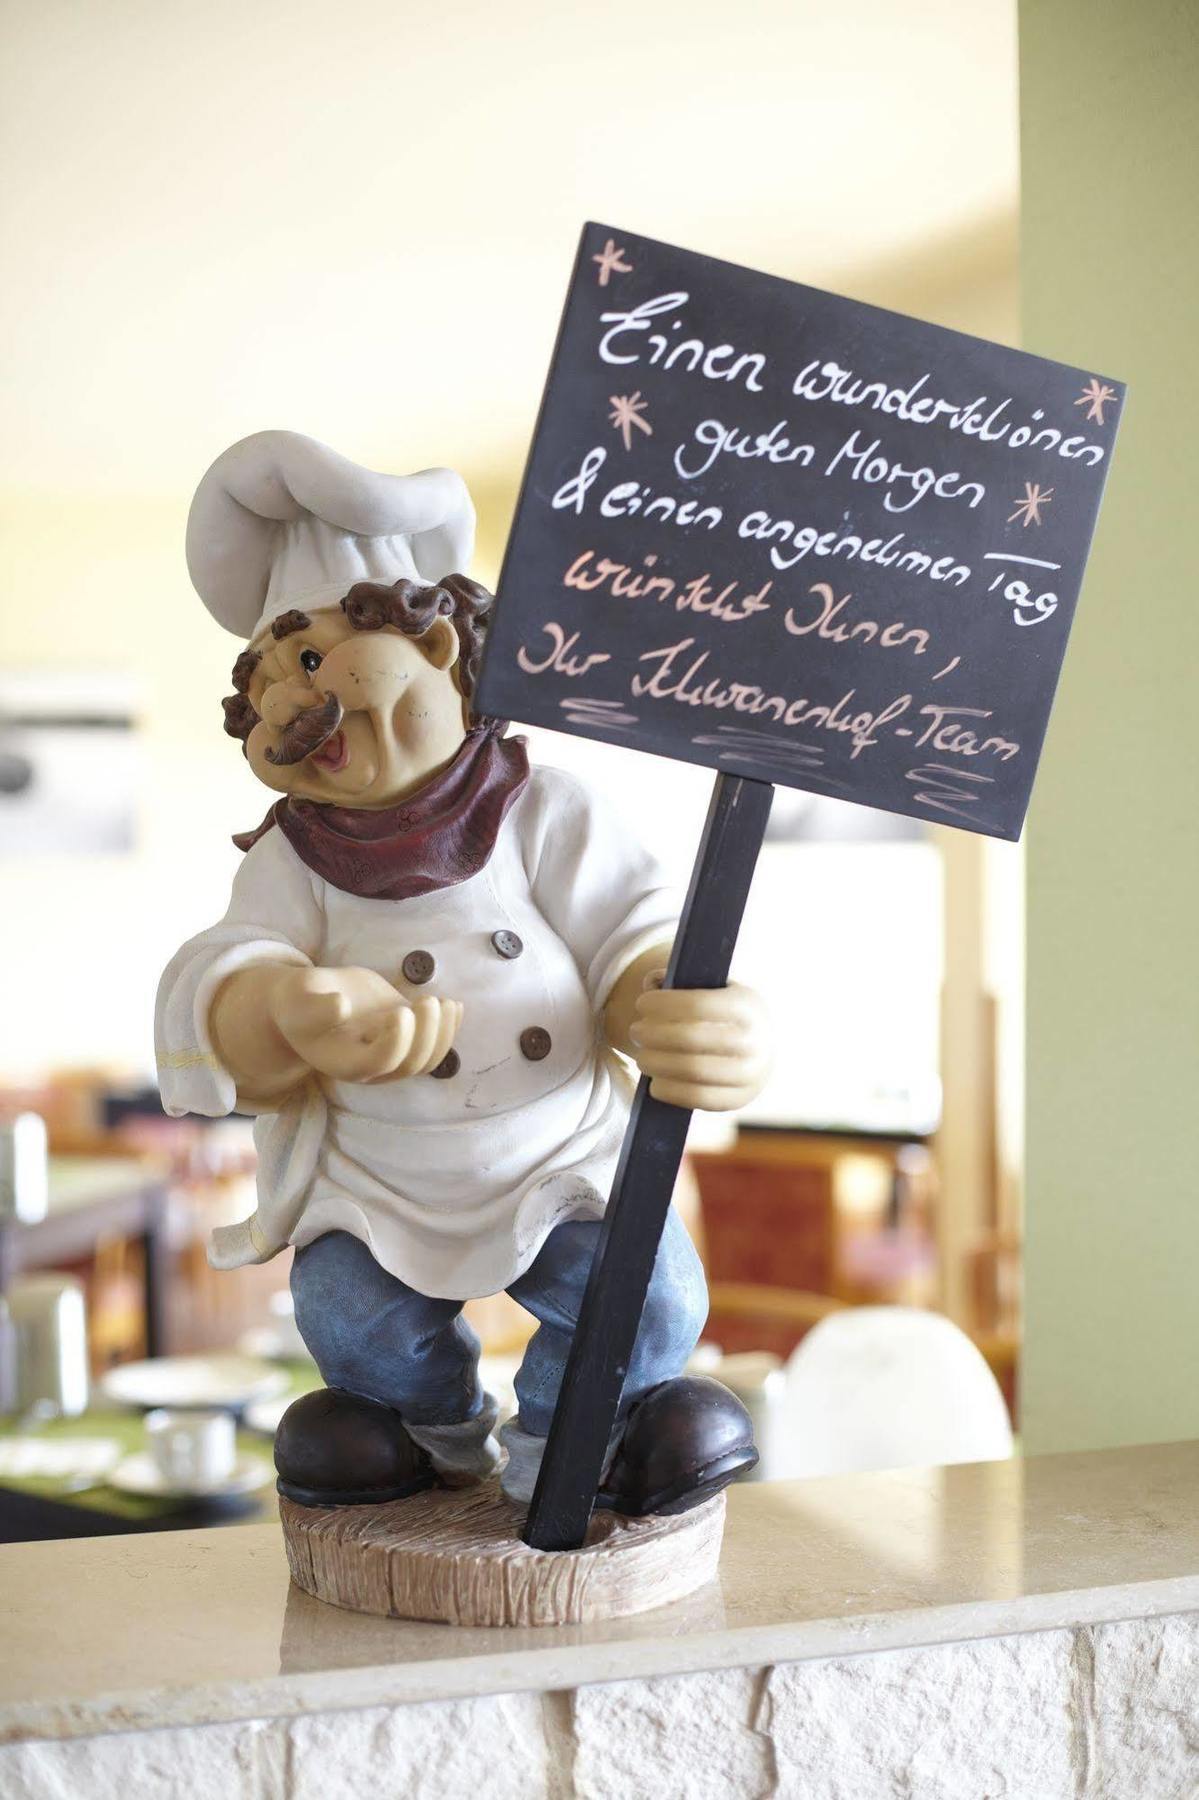 Einen wunderschönen
guten Morgen
& einen angenehmen Tag
wünscht Ihnen,
Ihr Schwanenhof-Team